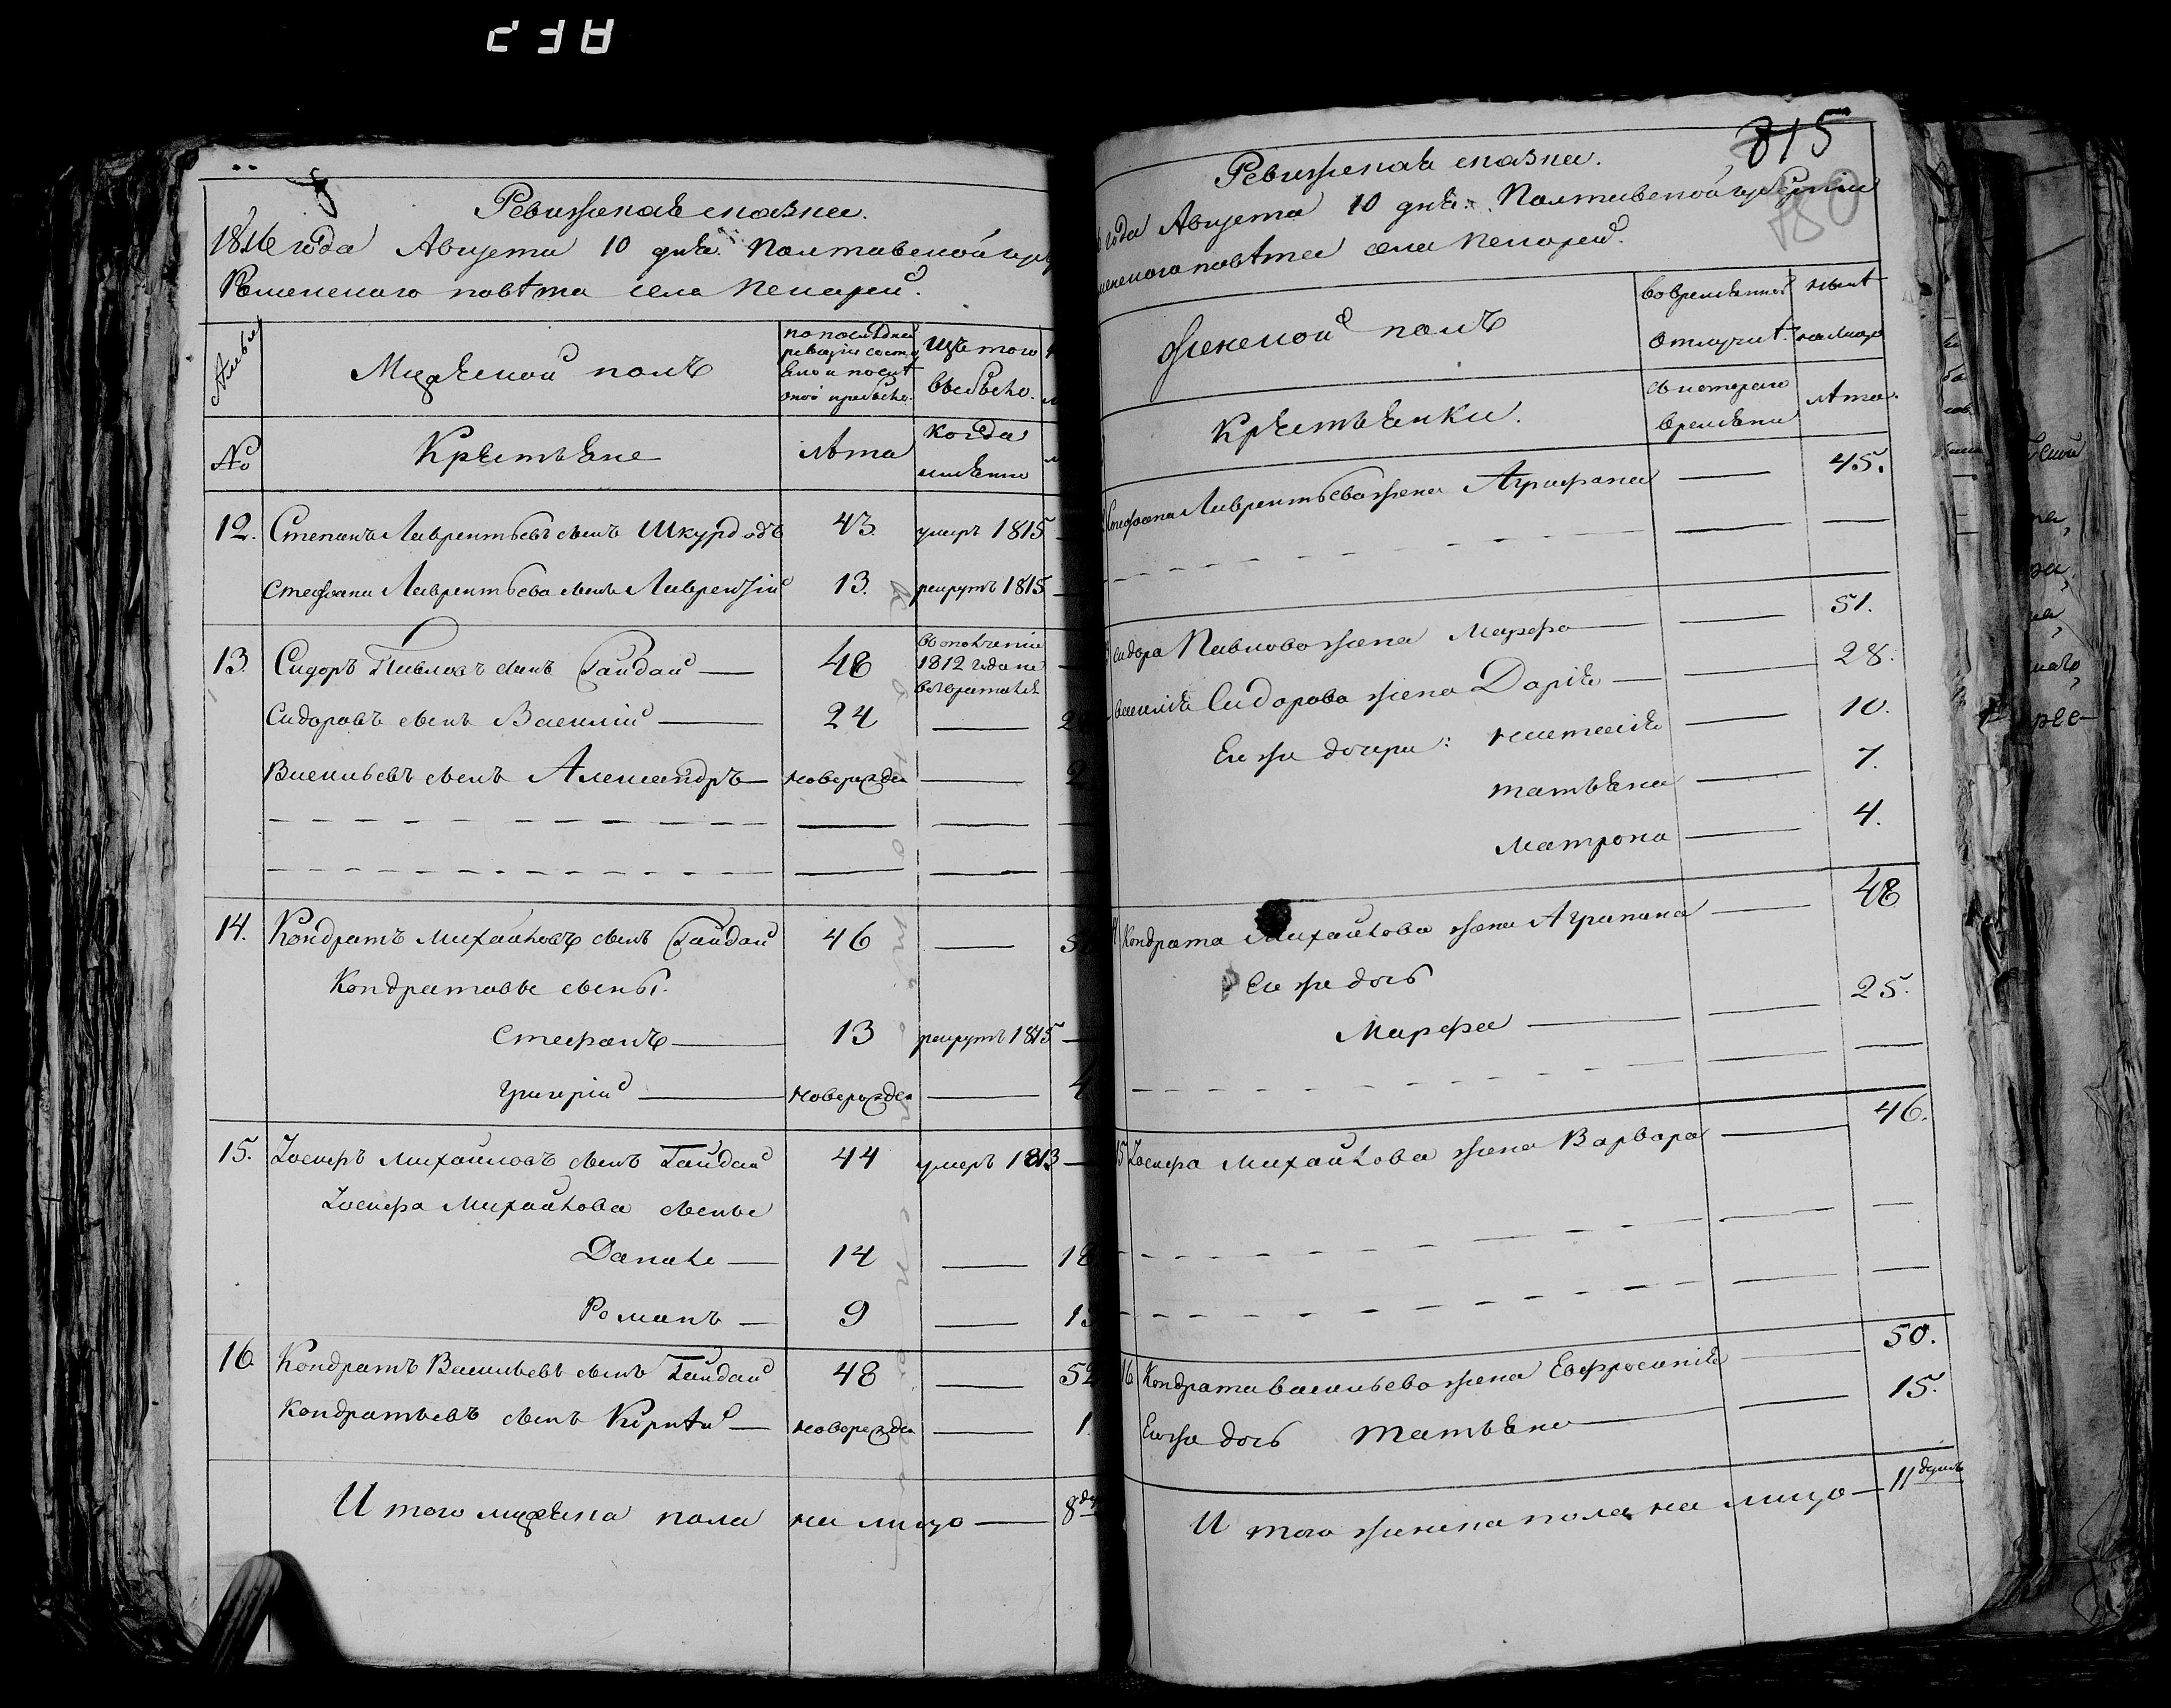 Ревижская сказка.
1816 года Августа 10 дня. Полтавской губ
Роменского повѣта села Пекарей.
Мужеской полъ
по последней
ревизіи состо
яло и послѣ
оной прибыло.
Изъ того
выбыло.
№
Крестьяне
лѣта
когда
имянно
12. Степанъ Лаврентьевъ сынъ Шкурдодъ 43. умеръ 1815
Стефана Лаврентьева сынъ Лаврентій 13. рекрутъ 1815
13. Сидоръ Павловъ сынъ Гайдай 48
въ ополченіи
1812 года не
возвратился
Сидоровъ сынъ Василій 24
Васильевъ сынъ Александръ новорожден 2
14. Кондратъ Михайловъ сынъ Гайдай 46 5
Кондратовы сыны.
Стефанъ 13 рекрутъ 1815
Григорій новорожден 4
15. Іосифъ Михайловъ сынъ Гайдай 44 умеръ 1813
Іосифа Михайлова сыны
Данило 14 18
Романъ 9 13
16. Кондратъ Васильевъ сынъ Гайдай 48 52
Кондратьевъ сынъ Корнѣй новорожден 1.
И того мужеска пола на лицо 8 ду
815
180
Ревижская сказка.
года Августа 10 дня. Полтавской губерніи
менского повѣта села Пекарей.
Женской полъ
во временной
отлучкѣ.
ныне
на лицо
Крестьянки.
съ которого
времяни
лѣта.
Стефана Лаврентьева жена Аграфана 45.
Сидора Павлова жена Марфа 51.
Василія Сидорова жена Дарія 28.
Ея же дочери: Настасія 10.
Татьяна 7.
Матрона 4.
14 Кондрата Михайлова жена Агрипина 48
Ея же дочь
Марфа 25.
15 Іосифа Михайлова жена Варвара 46.
16 Кондрата Васильева жена Евфросинія 50.
Ея же дочь Татьяна 15.
И того женска пола на лицо 11 душъ